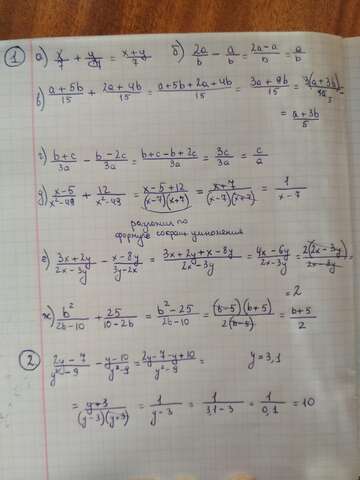 ① а) x/7 + y/7 = (x+y)/7 б) 2a/b - a/b = (2a-a)/b = a/b
в) (a+5b)/15 + (2a+4b)/15 = (a+5b+2a+4b)/15 = (3a+9b)/15 = 3(a+3b)/15
= (a+3b)/5
г) (b+c)/3a - (b-2c)/3a = (b+c-b+2c)/3a = 3c/3a = c/a
д) (x-5)/(x²-49) + 12/(x²-49) = (x-5+12)/((x-7)(x+7)) = (x+7)/((x-7)(x+7)) = 1/(x-7)
разложил по
формуле сокращ. умножения
е) (3x+2y)/(2x-3y) - (x-8y)/(3y-2x) = (3x+2y+x-8y)/(2x-3y) = (4x-6y)/(2x-3y) = 2(2x-3y)/(2x-3y) =
= 2
ж) b²/(2b-10) + 25/(10-2b) = (b²-25)/(2b-10) = (b-5)(b+5)/2(b-5) = (b+5)/2
② (2y-7)/(y²-9) - (y-10)/(y²-9) = (2y-7-y+10)/(y²-9) = y=3,1
= (y+3)/((y-3)(y+3)) = 1/(y-3) = 1/(3,1-3) = 1/0,1 = 10